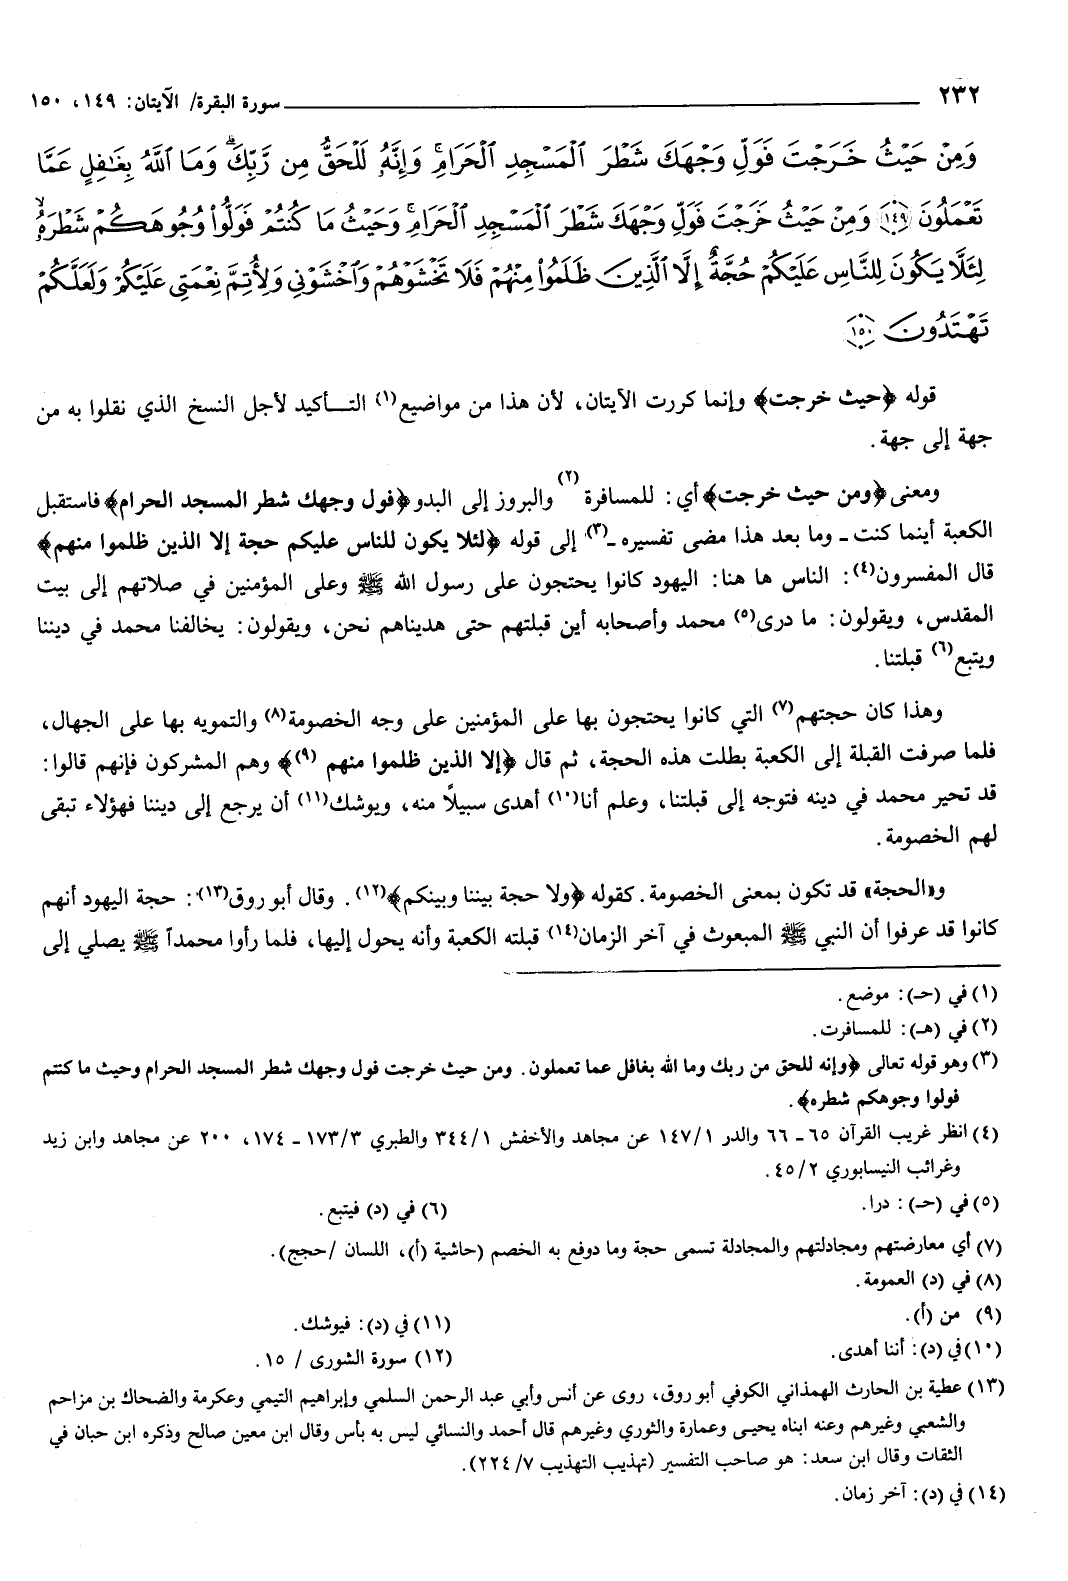 ٢٣٢ سورة البقرة/ الآيتان: ١٤٩، ١٥٠
وَمِنْ حَيْثُ خَرَجْتَ فَوَلِّ وَجْهَكَ شَطْرَ الْمَسْجِدِ الْحَرَامِ وَإِنَّهُ لَلْحَقُّ مِن رَّبِّكَ وَمَا اللَّهُ بِغَافِلٍ عَمَّا
تَعْمَلُونَ ١٤٩ وَمِنْ حَيْثُ خَرَجْتَ فَوَلِّ وَجْهَكَ شَطْرَ الْمَسْجِدِ الْحَرَامِ وَحَيْثُ مَا كُنتُمْ فَوَلُّوا وُجُوهَكُمْ شَطْرَهُ
لِئَلَّا يَكُونَ لِلنَّاسِ عَلَيْكُمْ حُجَّةٌ إِلَّا الَّذِينَ ظَلَمُوا مِنْهُمْ فَلَا تَخْشَوْهُمْ وَاخْشَوْنِي وَلِأُتِمَّ نِعْمَتِي عَلَيْكُمْ وَلَعَلَّكُمْ
تَهْتَدُونَ ١٥٠
قوله ﴿حيث خرجت﴾ وإنما كررت الآيتان، لأن هذا من مواضيع(١) التـأكيد لأجل النسخ الذي نقلوا به من
جهة إلى جهة.
ومعنى ﴿ومن حيث خرجت﴾ أي: للمسافرة(٢) والبروز إلى البدو ﴿فول وجهك شطر المسجد الحرام﴾ فاستقبل
الكعبة أينما كنت ـ وما بعد هذا مضى تفسيره ـ(٣) إلى قوله ﴿لئلا يكون للناس عليكم حجة إلا الذين ظلموا منهم﴾
قال المفسرون(٤): الناس ها هنا: اليهود كانوا يحتجون على رسول الله ﷺ وعلى المؤمنين في صلاتهم إلى بيت
المقدس، ويقولون: ما درى(٥) محمد وأصحابه أين قبلتهم حتى هديناهم نحن، ويقولون: يخالفنا محمد في ديننا
ويتبع(٦) قبلتنا.
وهذا كان حجتهم(٧) التي كانوا يحتجون بها على المؤمنين على وجه الخصومة(٨) والتمويه بها على الجهال،
فلما صرفت القبلة إلى الكعبة بطلت هذه الحجة، ثم قال ﴿إلا الذين ظلموا منهم (٩)﴾ وهم المشركون فإنهم قالوا:
قد تحير محمد في دينه فتوجه إلى قبلتنا، وعلم أنا(١٠) أهدى سبيلاً منه، ويوشك(١١) أن يرجع إلى ديننا فهؤلاء تبقى
لهم الخصومة.
و«الحجة» قد تكون بمعنى الخصومة. كقوله ﴿ولا حجة بيننا وبينكم﴾(١٢). وقال أبو روق(١٣): حجة اليهود أنهم
كانوا قد عرفوا أن النبي ﷺ المبعوث في آخر الزمان(١٤) قبلته الكعبة وأنه يحول إليها، فلما رأوا محمداً ﷺ يصلي إلى
(١) في (حـ): موضع.
(٢) في (هـ): للمسافرت.
(٣) وهو قوله تعالى ﴿وإنه للحق من ربك وما الله بغافل عما تعملون. ومن حيث خرجت فول وجهك شطر المسجد الحرام وحيث ما كنتم
فولوا وجوهكم شطره﴾.
(٤) انظر غريب القرآن ٦٥ ـ ٦٦ والدر ١٤٧/١ عن مجاهد والأخفش ٣٤٤/١ والطبري ١٧٣/٣ ـ ١٧٤، ٢٠٠ عن مجاهد وابن زيد
وغرائب النيسابوري ٤٥/٢.
(٥) في (حـ): درا. (٦) في (د) فيتبع.
(٧) أي معارضتهم ومجادلتهم والمجادلة تسمى حجة وما دوفع به الخصم (حاشية (أ)، اللسان /حجج).
(٨) في (د) العمومة.
(٩) من (أ). (١١) في (د): فيوشك.
(١٠) في (د): أننا أهدى. (١٢) سورة الشورى / ١٥.
(١٣) عطية بن الحارث الهمذاني الكوفي أبو روق، روى عن أنس وأبي عبد الرحمن السلمي وإبراهيم التيمي وعكرمة والضحاك بن مزاحم
والشعبي وغيرهم وعنه ابناه يحيى وعمارة والثوري وغيرهم قال أحمد والنسائي ليس به بأس وقال ابن معين صالح وذكره ابن حبان في
الثقات وقال ابن سعد: هو صاحب التفسير (تهذيب التهذيب ٢٢٤/٧).
(١٤) في (د): آخر زمان.